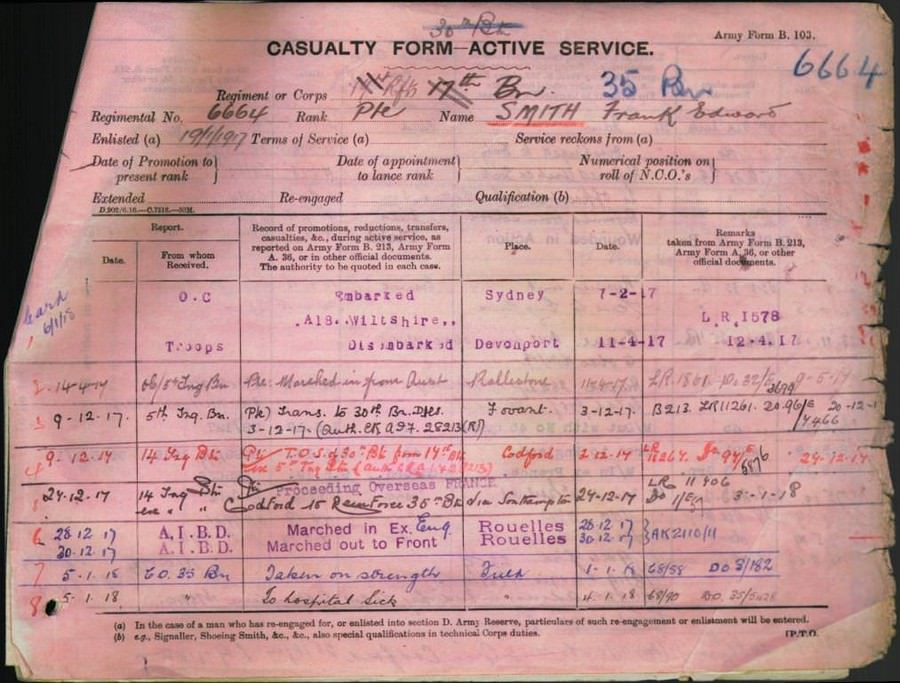 30th Bn
Army Form B. 103.
CASUALTY FORM—ACTIVE SERVICE.
6664
Regiment or Corps 17th Bn. 35 Bn
Regimental No. 6664 Rank Pte Name SMITH Frank Edward
Enlisted (a) 19/1/1917 Terms of Service (a) Service reckons from (a)
Date of Promotion to present rank } Date of appointment to lance rank } Numerical position on roll of N.C.O.'s }
Extended Re-engaged Qualification (b)
Report.
Date.
From whom Received.
Record of promotions, reductions, transfers, casualties, &c., during active service, as reported on Army Form B. 213, Army Form A. 36, or in other official documents. The authority to be quoted in each case.
Place.
Date.
Remarks taken from Army Form B. 213, Army Form A. 36, or other official documents.
6/1/18
O.C Embarked Sydney 7-2-17
A18. Wiltshire,, L.R.1578
1 Troops Disembarked Devonport 11-4-17 12.4.17
2 14-4-17 Marched in from Aust Rollestone 11-4-17 LR 1861
3 9-12-17. 5th Trg. Bn. Pte) Trans. to 30th Bn. Fovant. 3-12-17. B213. LR11261. 20-12-1
3-12-17. (Auth.
4 9-12-17 14 Trg Bn Pte T.O.S. of 30th Bn from Codford 2-12-17 LR 24-12-17
5 24.12.17 14 Trg Bn Pte Proceeding Overseas FRANCE LR 11406
Codford to Reinforce 35th Bn via Southampton 24-12-17 3-1-18
6 28.12.17 A.I.B.D. Marched in Ex. Eng Rouelles 28.12.17 } AK2110/11
30.12.17 A.I.B.D. Marched out to Front Rouelles 30.12.17
7 5-1-18 C.O. 35 Bn Taken on strength Field 1-1-18 68/88 DO 3/182
8 5-1-18 " To hospital Sick " 4-1-18 68/90
(a) In the case of a man who has re-engaged for, or enlisted into section D. Army Reserve, particulars of such re-engagement or enlistment will be entered.
(b) e.g., Signaller, Shoeing Smith, &c., &c., also special qualifications in technical Corps duties.
[P.T.O.